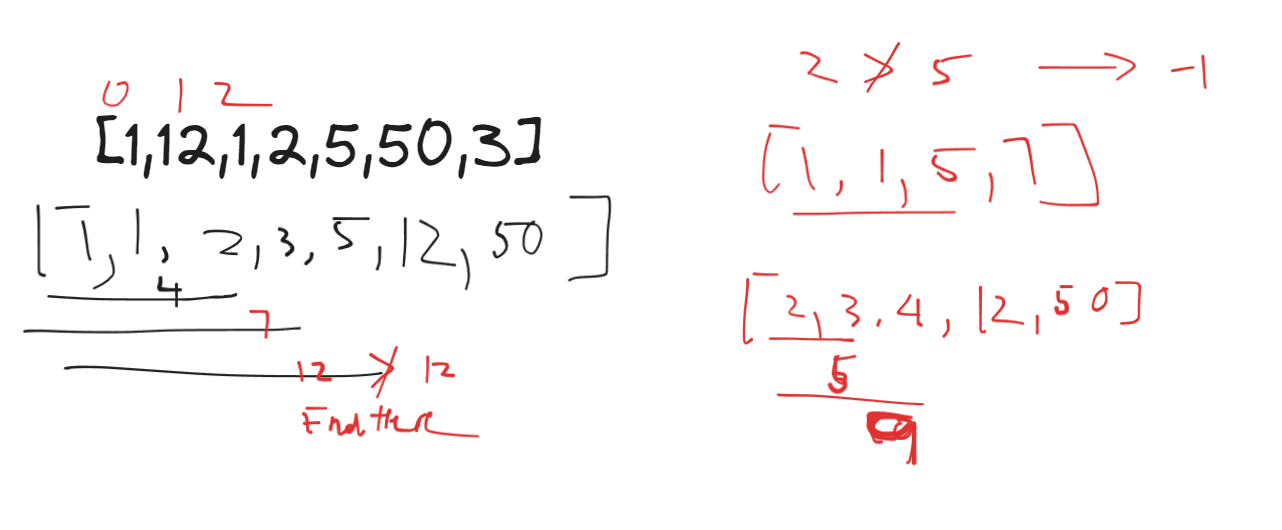 0 1 2
[1,12,1,2,5,50,3]
[1,1,2,3,5,12,50]
4
7
12 ≯ 12
End Here
2 ≯ 5 → -1
[1,1,5,7]
[2,3,4,12,50]
5
9